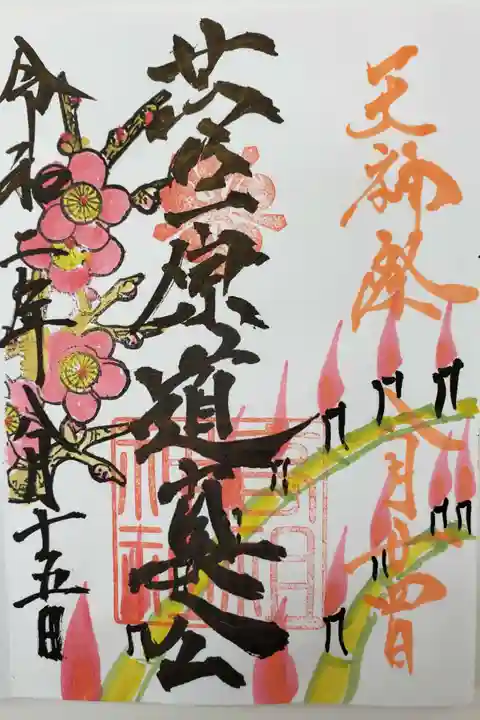 天神祭
八月廿四日
菅原道真公
春日神社
令和二年
八月十五日